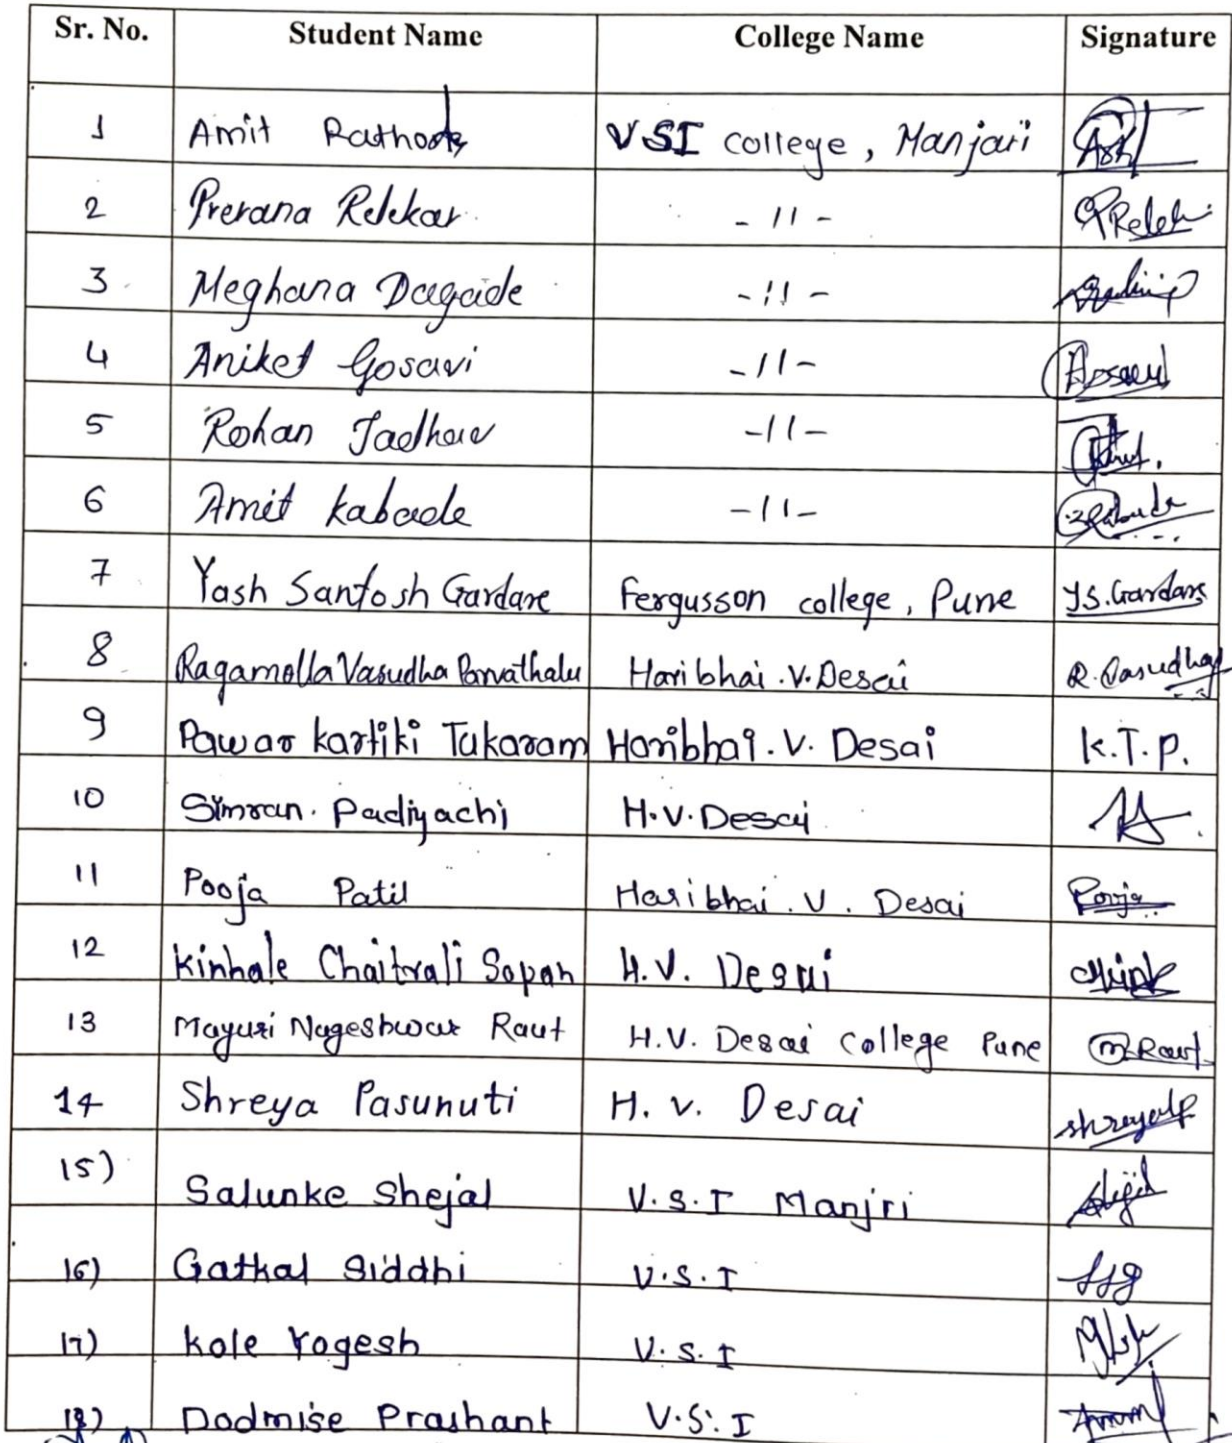 Sr. No. Student Name College Name Signature
1 Amit Rathod VSI college, Manjari
2 Prerana Relekar - 11 - PRelek
3 Meghana Dagade - 11 -
4 Aniket Gosavi - 11 -
5 Rohan Jadhav - 11 -
6 Amit kabade - 11 -
7 Yash Santosh Gardare Fergusson college, Pune Y.S.Gardare
8 Ragamolla Vasudha Parvathalu Haribhai .V. Desai R. Vasudha
9 Pawar kartiki Tukaram Haribhai . V. Desai K.T.P.
10 Simran. Padiyachi H.V. Desai
11 Pooja Patil Haribhai . V . Desai Pooja
12 Kinhale Chaitrali Sopan H.V. Desai
13 Mayuri Nageshwar Raut H.V. Desai College Pune M.Raut
14 Shreya Pasunuti H. V. Desai
15) Salunke Shejal V.S.I Manjri
16) Gatkal Siddhi V.S.I
17) Kole Yogesh V.S.I
18) Dodmise Prashant V.S.I